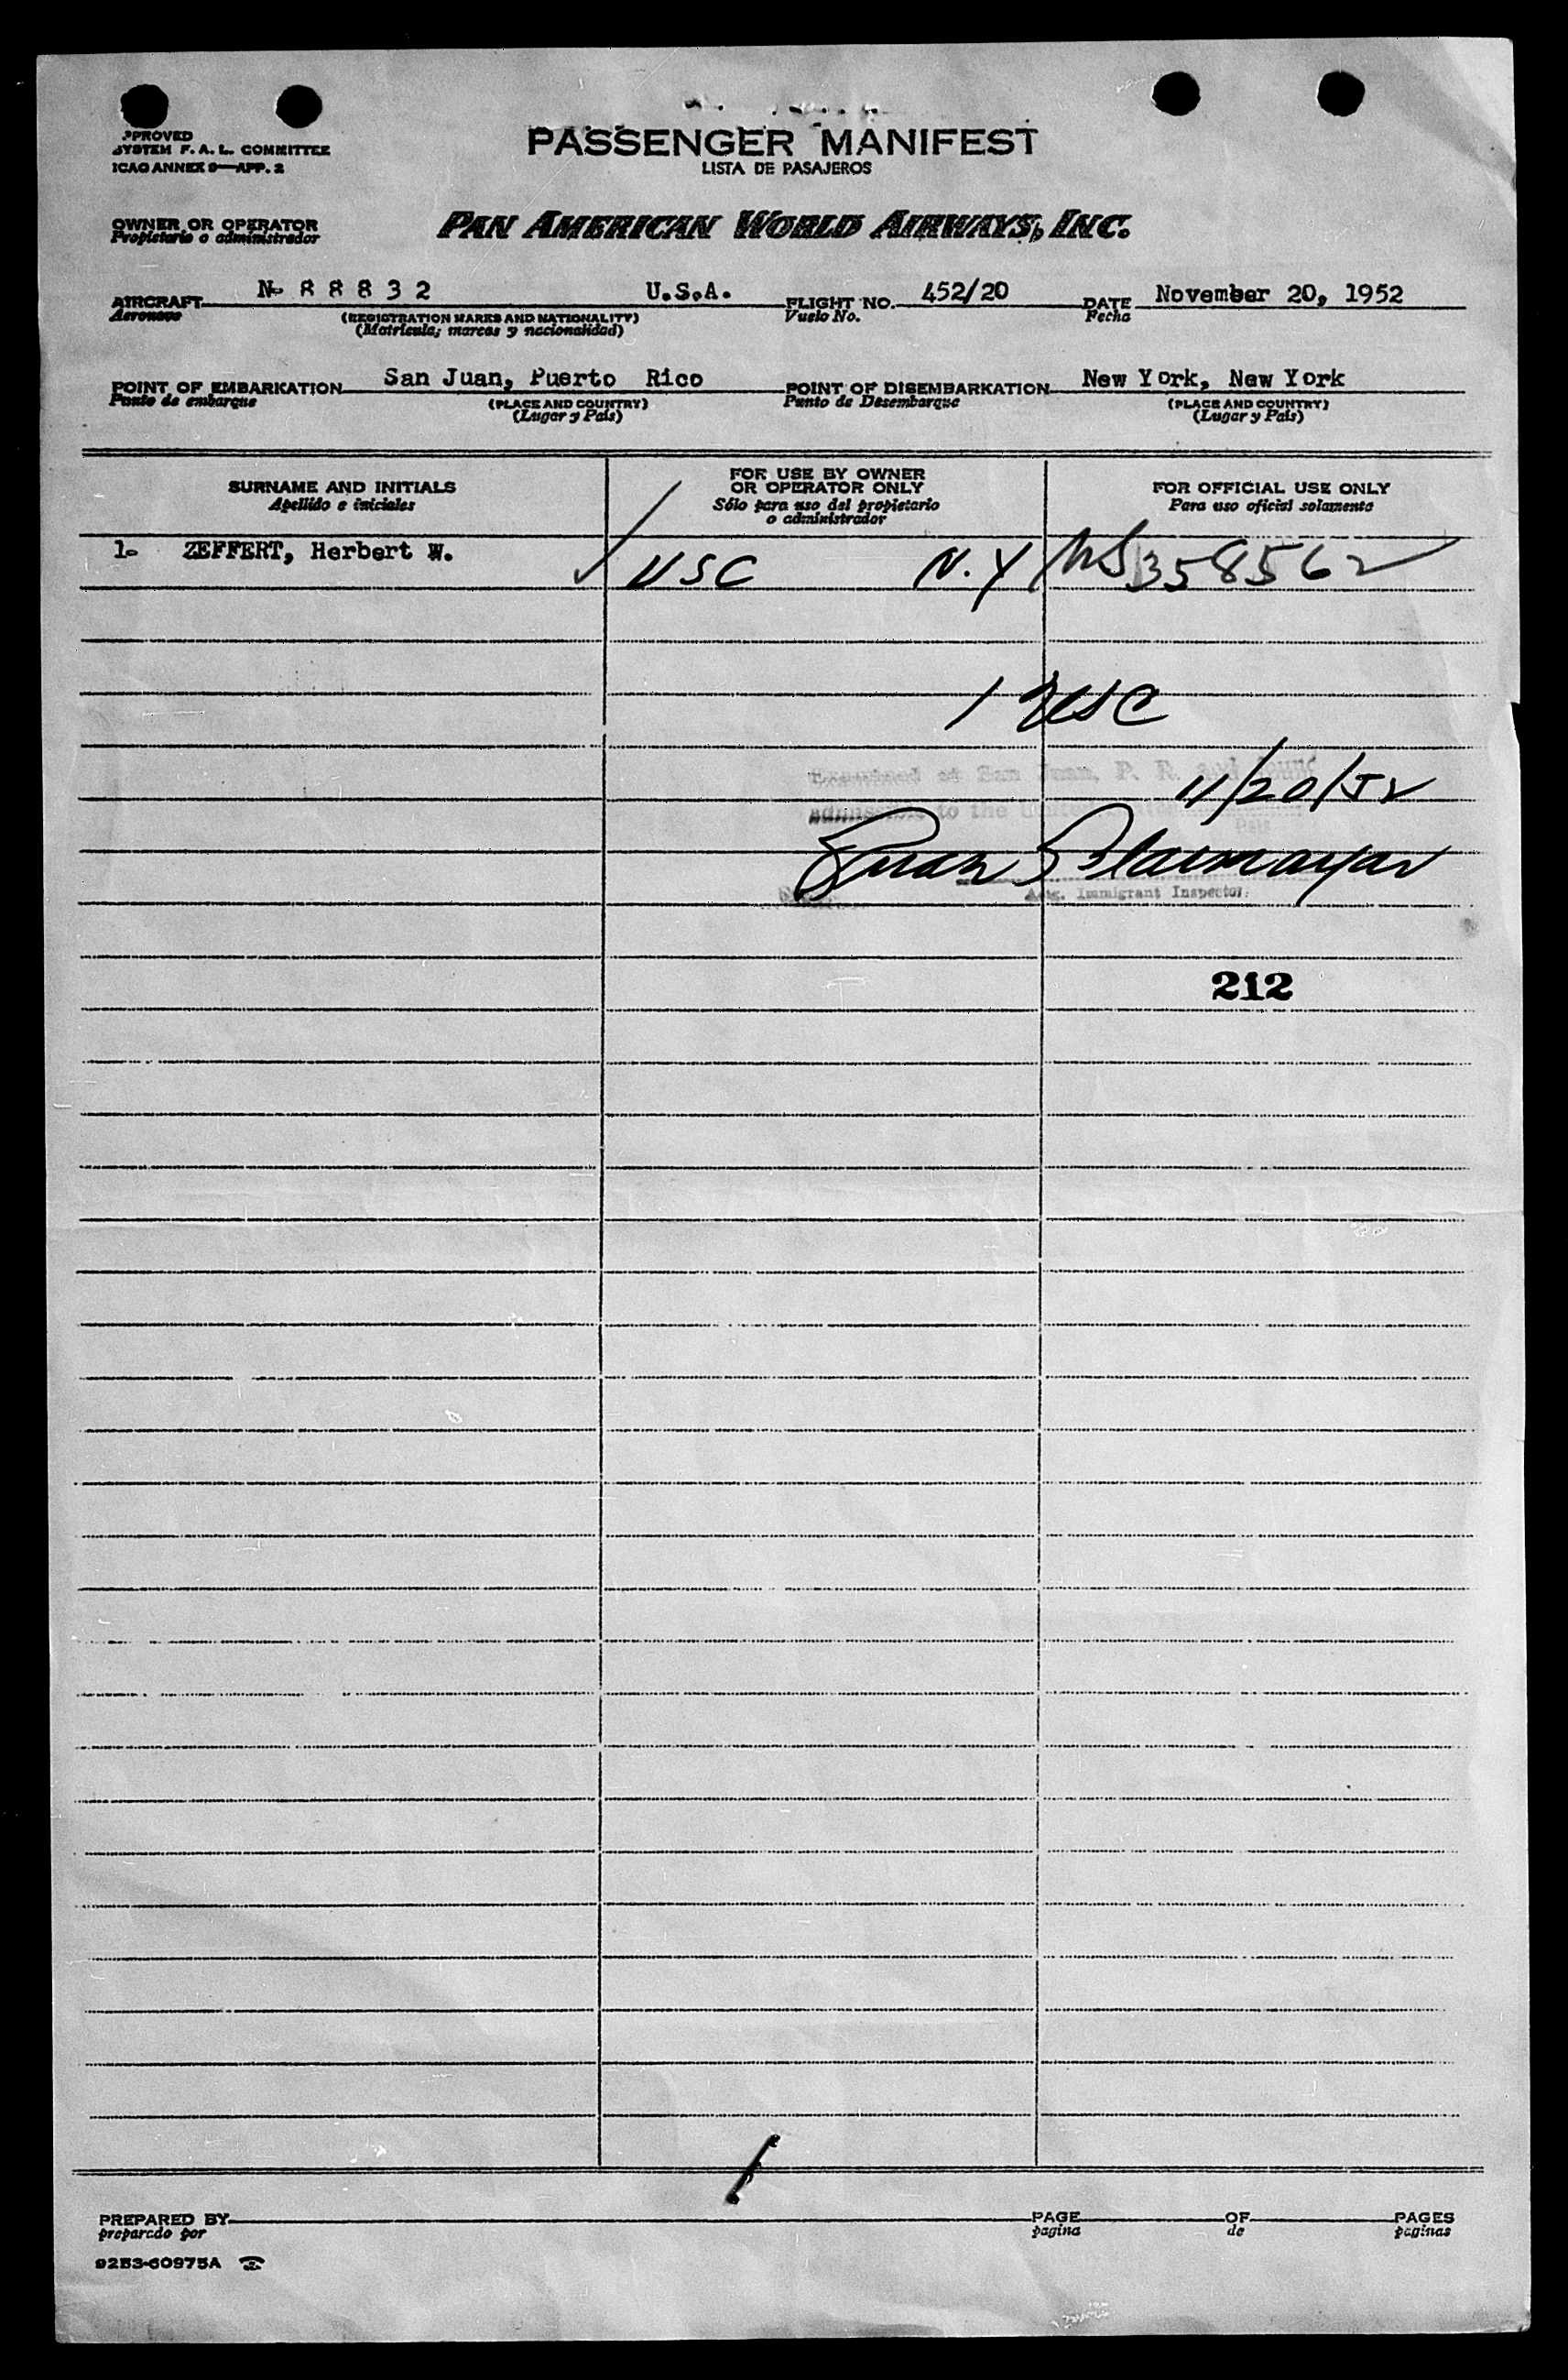 PPROVED
SYSTEM F. A. L. COMMITTEE
ICAO ANNEX 9—APP. 2
PASSENGER MANIFEST
LISTA DE PASAJEROS
OWNER OR OPERATOR
Propietario o administrador
PAN AMERICAN WORLD AIRWAYS, INC.
AIRCRAFT N- 8 8 8 3 2 U.S.A. FLIGHT NO. 452/20 DATE November 20, 1952
Aeronave (REGISTRATION MARKS AND NATIONALITY) Vuelo No. Fecha
(Matricula; marcas y nacionalidad)
POINT OF EMBARKATION San Juan, Puerto Rico POINT OF DISEMBARKATION New York, New York
Punto de embarque (PLACE AND COUNTRY) Punto de Desembarque (PLACE AND COUNTRY)
(Lugar y País) (Lugar y País)
SURNAME AND INITIALS
Apellido e iniciales
FOR USE BY OWNER
OR OPERATOR ONLY
Sólo para uso del propietario
o administrador
FOR OFFICIAL USE ONLY
Para uso oficial solamente
1- ZEFFERT, Herbert W. USC N.Y 358562
1 USC
at San Juan, P. R. and found
11/20/52
admissible to the United
Juan
Actg. Immigrant Inspector.
212
1
PREPARED BY PAGE OF PAGES
preparado por pagina de paginas
92B3-60975A